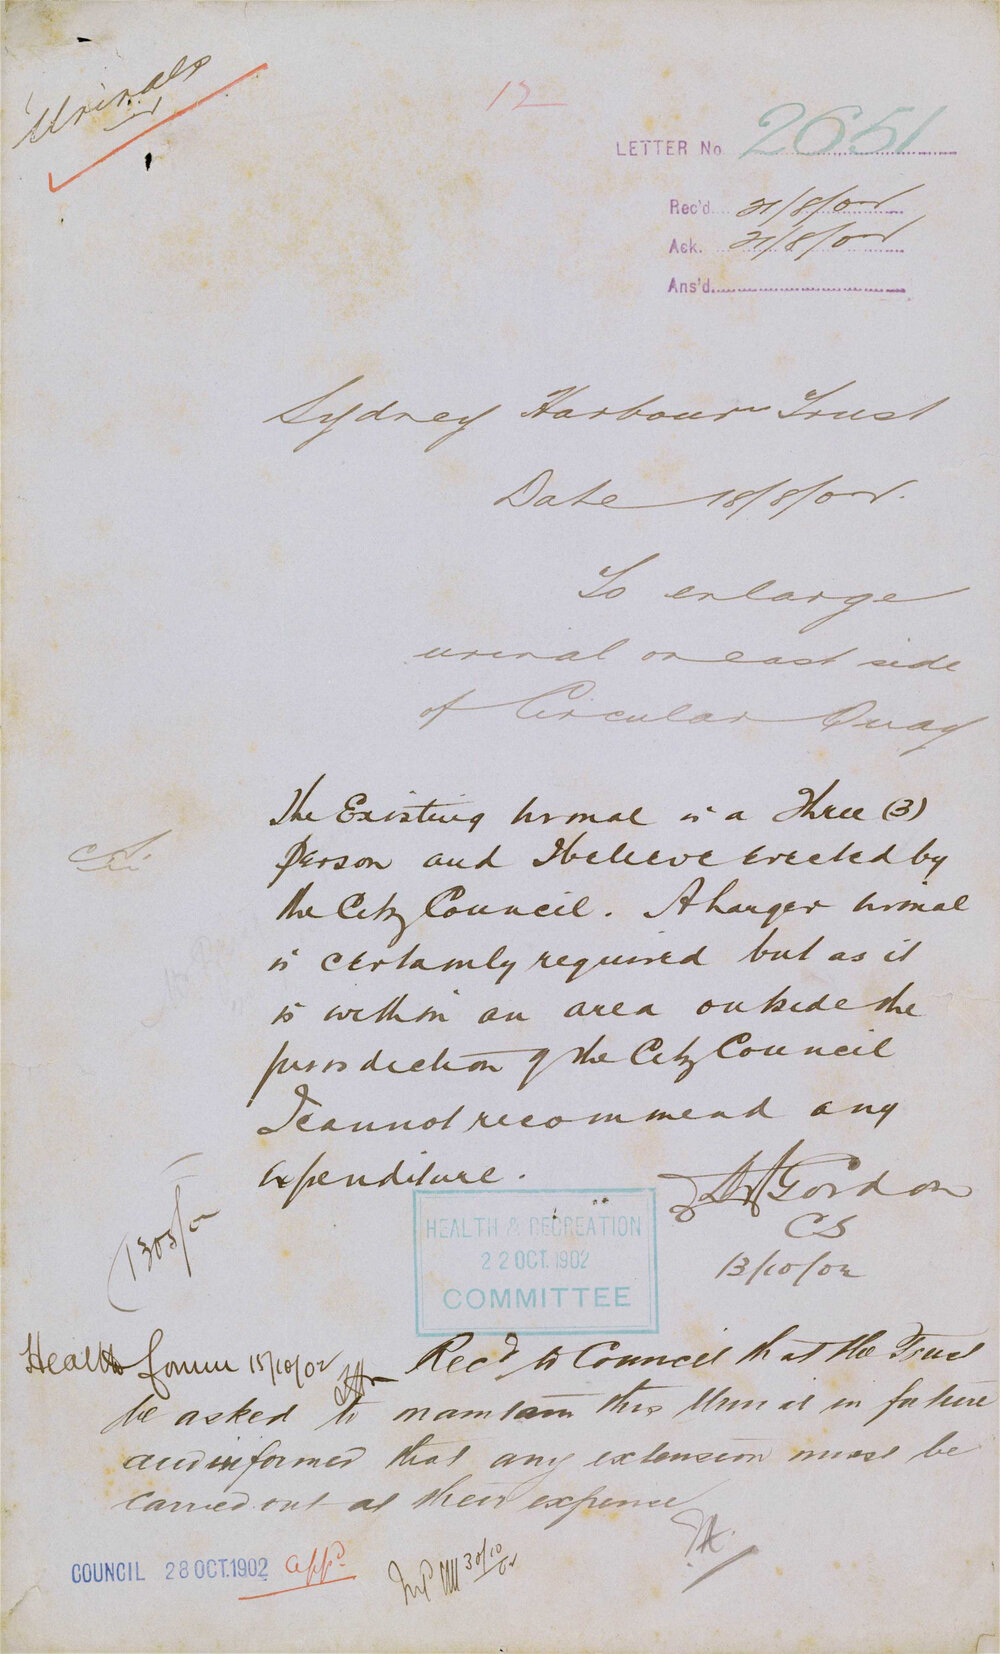 Urinals
12
LETTER No. 2651
Rec'd. 21/8/02
Ack. 21/8/02
Ans'd.
Sydney Harbour Trust
Date 18/8/02.
To enlarge
urinal on east side
of Circular Quay
The Existing Urinal is a Three (3)
Person and I believe erected by
the City Council. A larger Urinal
is certainly required but as it
is within an area outside the
jurisdiction of the City Council
I cannot recommend any
expenditure.
Gordon
CS
13/10/02
1303/02
HEALTH & RECREATION
22 OCT. 1902
COMMITTEE
Health Comm 15/10/02
Recd to Council that the Trust
be asked to maintain this Urinal in future
and informed that any extension must be
carried out at their expense
COUNCIL 28 OCT. 1902 appd.
30/10/02